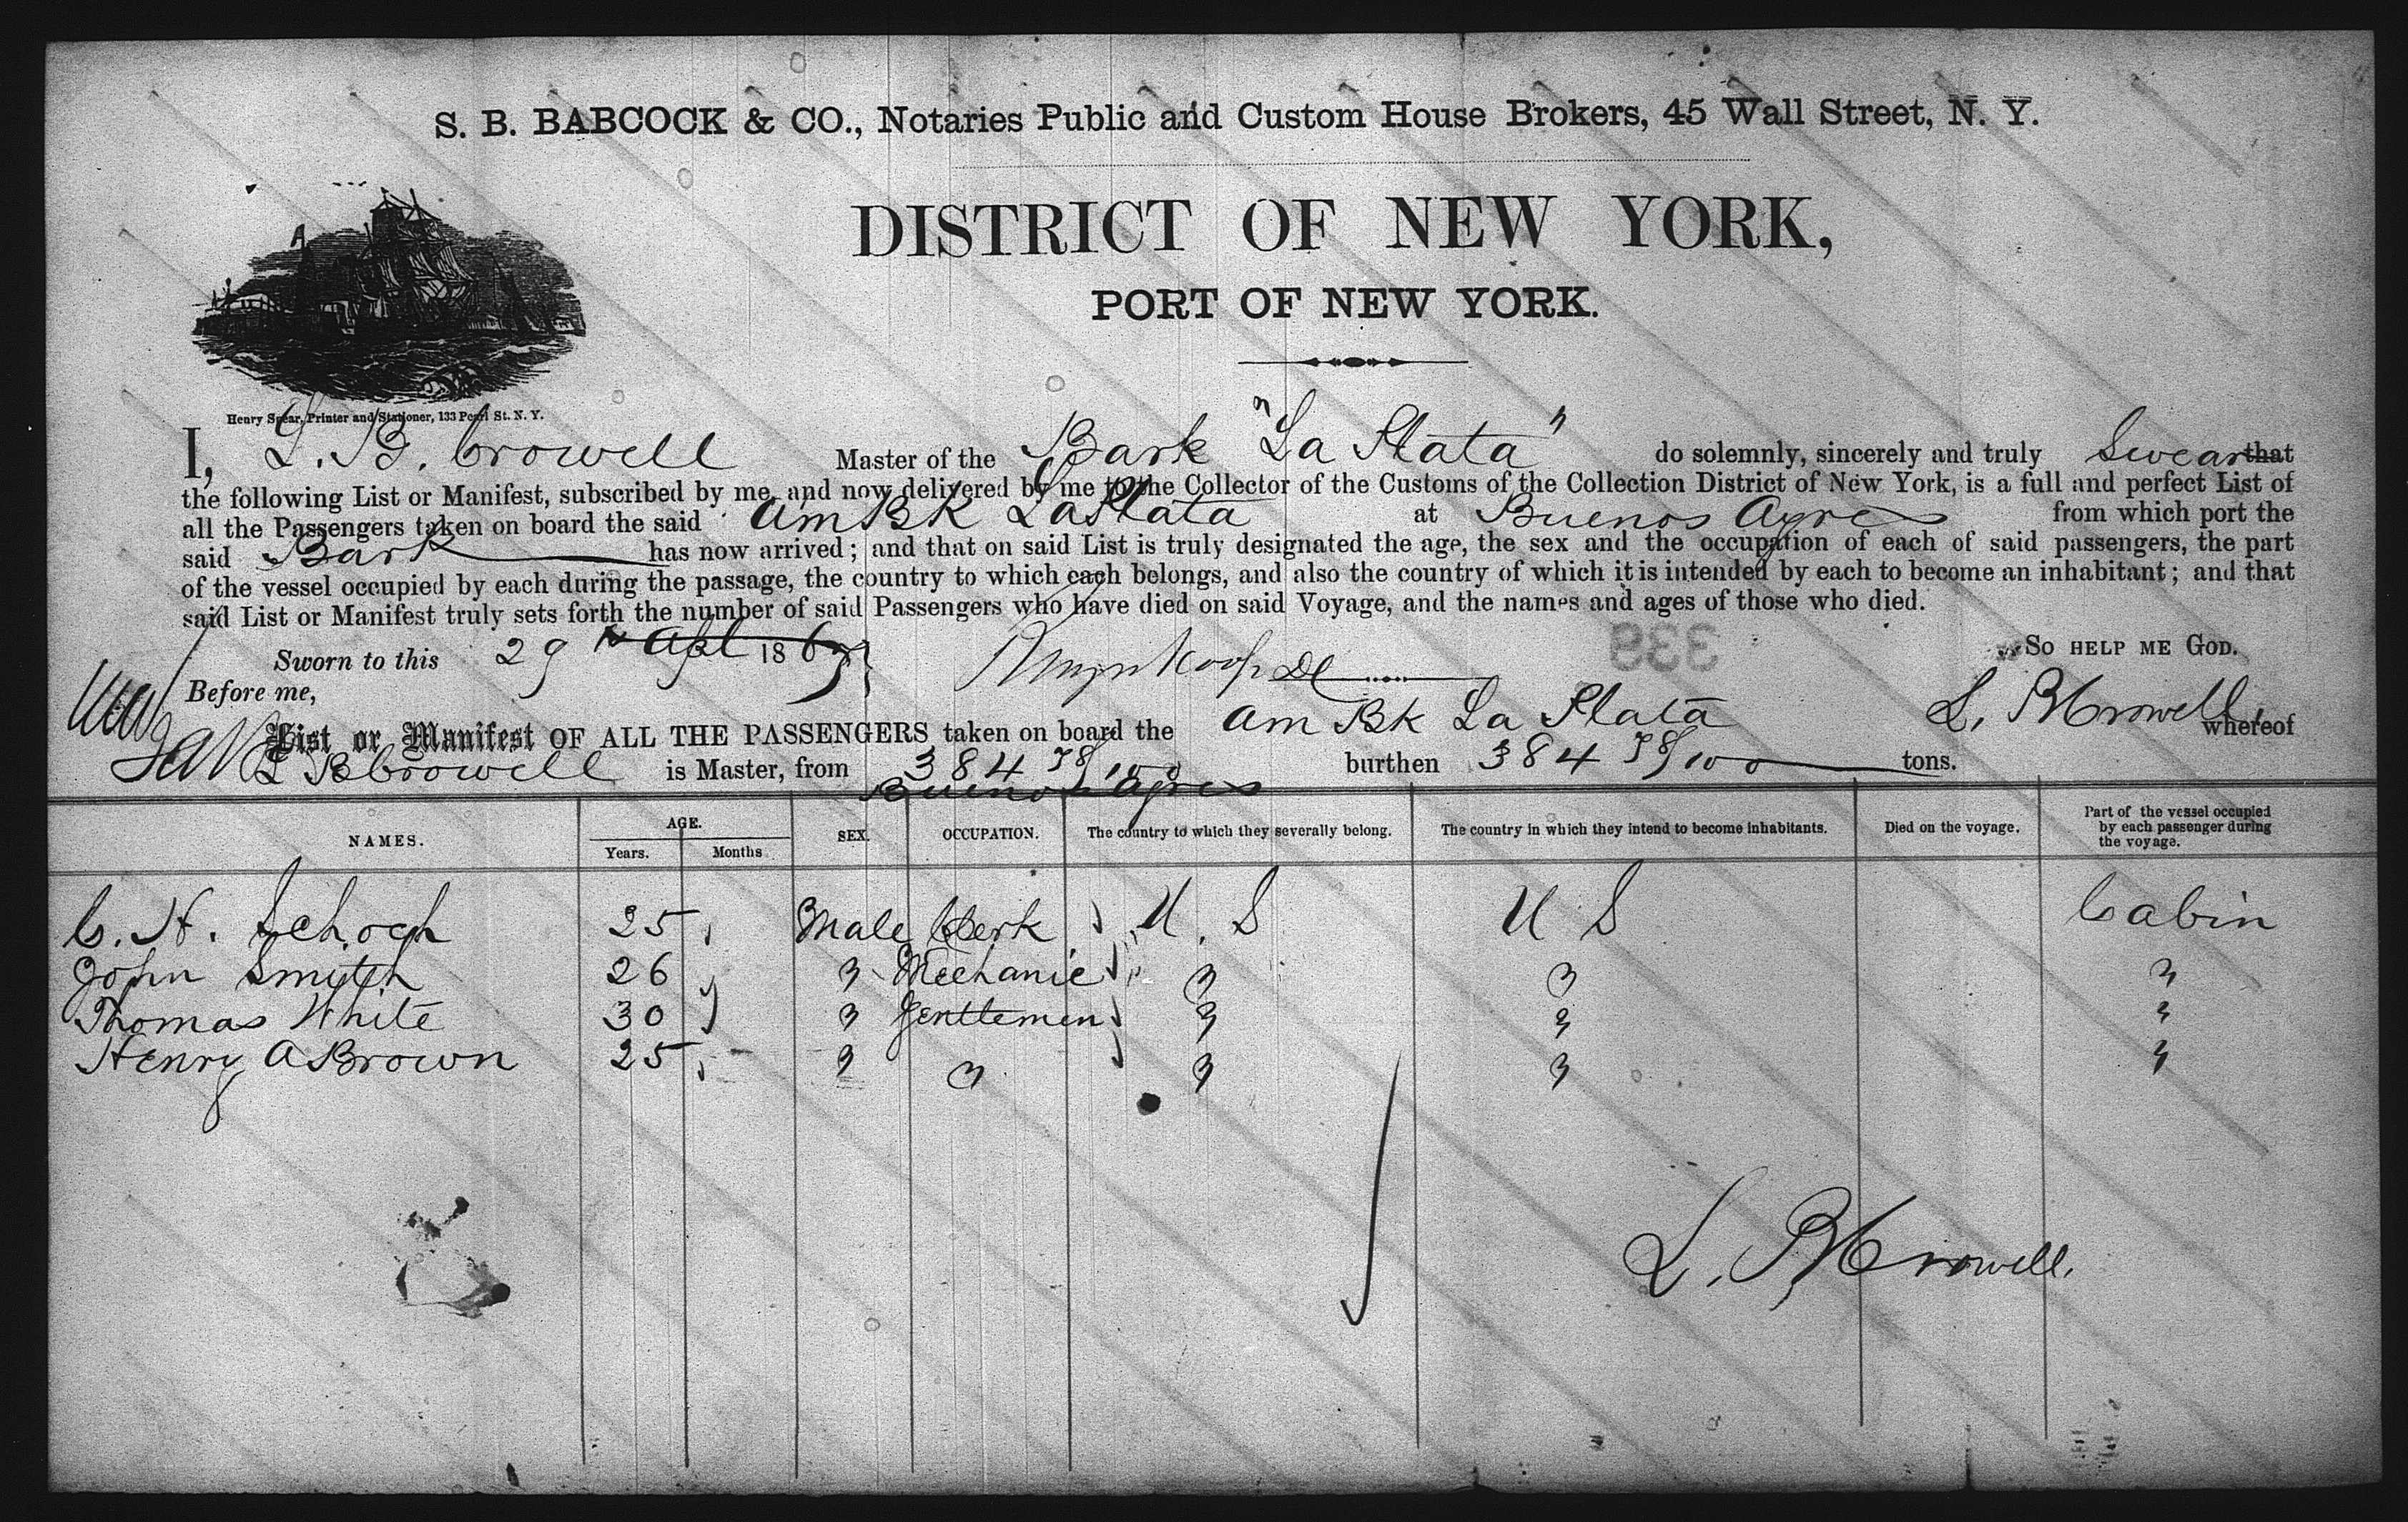 S. B. BABCOCK & CO., Notaries Public and Custom House Brokers, 45 Wall Street, N. Y.
DISTRICT OF NEW YORK,
PORT OF NEW YORK.
Henry Spear, Printer and Stationer, 133 Pearl St. N. Y.
I, L. B. Crowell Master of the Bark "La Plata" do solemnly, sincerely and truly Swear that
the following List or Manifest, subscribed by me, and now delivered by me to the Collector of the Customs of the Collection District of New York, is a full and perfect List of
all the Passengers taken on board the said Am Bk La Plata at Buenos Ayres from which port the
said Bark has now arrived; and that on said List is truly designated the age, the sex and the occupation of each of said passengers, the part
of the vessel occupied by each during the passage, the country to which each belongs, and also the country of which it is intended by each to become an inhabitant; and that
said List or Manifest truly sets forth the number of said Passengers who have died on said Voyage, and the names and ages of those who died.
339
Sworn to this 29th Apl 1867 So HELP ME GOD.
Before me, L. B Crowell
List or Manifest OF ALL THE PASSENGERS taken on board the Am Bk La Plata whereof
L B Crowell is Master, from 384 78/100 Buenos Ayres burthen 384 78/100 tons.
NAMES. AGE. Years. Months SEX. OCCUPATION. The country to which they severally belong. The country in which they intend to become inhabitants. Died on the voyage. Part of the vessel occupied by each passenger during the voyage.
C. H. Schoch 25 Male Clerk U. S U S Cabin
John Smyth 26 " Mechanic " " "
Thomas White 30 " Gentlemen " " "
Henry A Brown 25 " " " " "
L. B Crowell.